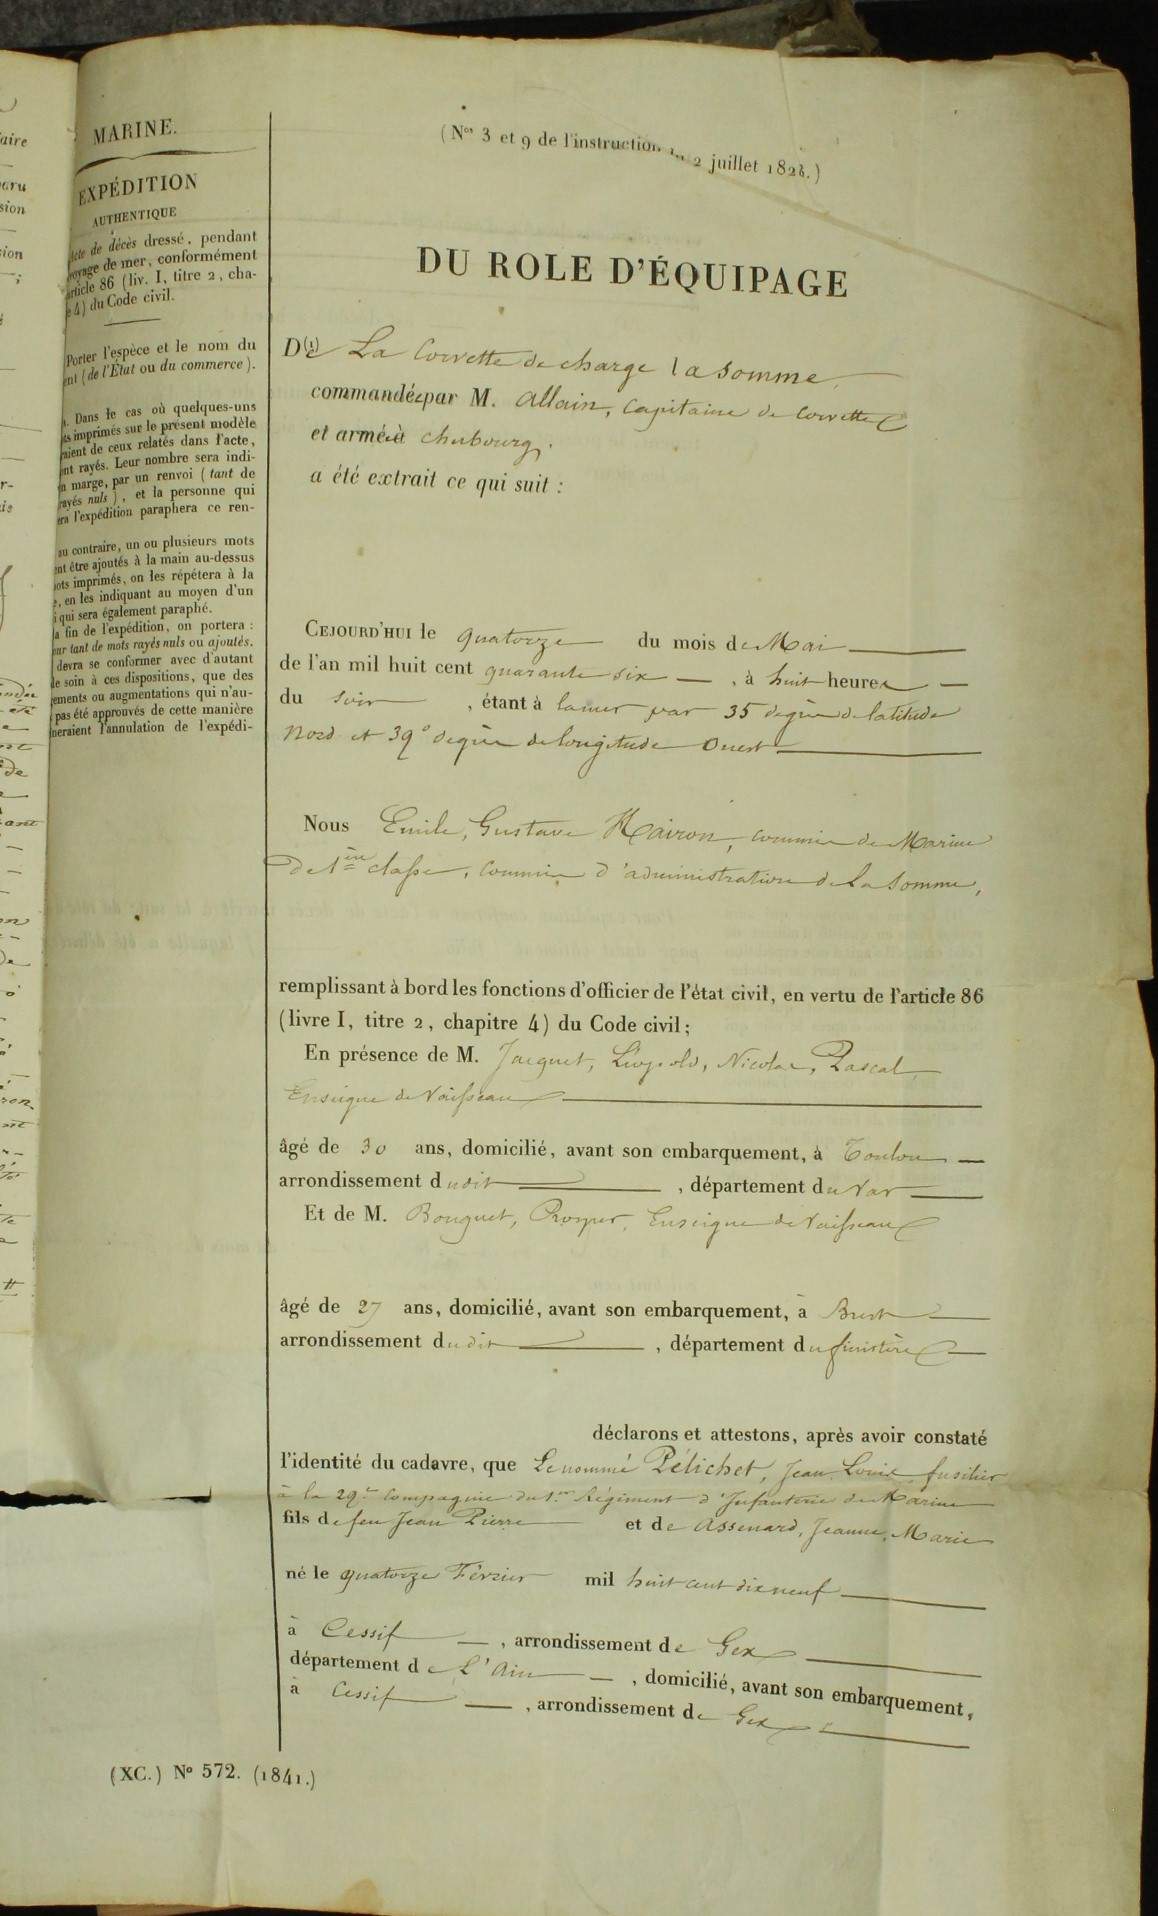 MARINE.
EXPÉDITION
AUTHENTIQUE
Acte de décès dressé, pendant
voyage de mer, conformément
article 86 (liv. I, titre 2, cha-
e 4) du Code civil.
Porter l'espèce et le nom du
ent (de l'État ou du commerce).
Dans le cas où quelques-uns
ts imprimés sur le présent modèle
raient de ceux relatés dans l'acte,
ont rayés. Leur nombre sera indi-
en marge, par un renvoi (tant de
rayés nuls), et la personne qui
era l'expédition paraphera ce ren-
au contraire, un ou plusieurs mots
ent être ajoutés à la main au-dessus
mots imprimés, on les répétera à la
e, en les indiquant au moyen d'un
i qui sera également paraphé.
la fin de l'expédition, on portera :
our tant de mots rayés nuls ou ajoutés.
devra se conformer avec d'autant
de soin à ces dispositions, que des
gements ou augmentations qui n'au-
pas été approuvés de cette manière
neraient l'annulation de l'expédi-
(Nos 3 et 9 de l'instruction du 2 juillet 1828.)
DU ROLE D'ÉQUIPAGE
De (1) La Corvette de charge la Somme,
commandée par M. Allain, Capitaine de Corvette
et armée à Cherbourg,
a été extrait ce qui suit :
CEJOURD'HUI le quatorze du mois de Mai
de l'an mil huit cent quarante six, à huit heures
du soir, étant à la mer par 35 degrés de latitude
Nord et 39° degrés de longitude Ouest
Nous Emile, Gustave Mairon, commis de Marine
de 1ère classe, Commis d'administration de la Somme,
remplissant à bord les fonctions d'officier de l'état civil, en vertu de l'article 86
(livre I, titre 2, chapitre 4) du Code civil;
En présence de M. Jacquet, Léopold, Nicolas, Pascal,
Enseigne de Vaisseau
âgé de 30 ans, domicilié, avant son embarquement, à Toulon
arrondissement dudit, département du Var
Et de M. Bouquet, Prosper, Enseigne de Vaisseau
âgé de 27 ans, domicilié, avant son embarquement, à Brest
arrondissement dudit, département du finistère
déclarons et attestons, après avoir constaté
l'identité du cadavre, que Le nommé Pélichet, Jean Louis, fusilier
à la 29e Compagnie du 1er Régiment d'Infanterie de Marine
fils de feu Jean Pierre et de Assenard, Jeanne, Marie
né le quatorze Février mil huit cent dix neuf
à Cessif, arrondissement de Gex
département de L'Ain, domicilié, avant son embarquement,
à Cessif, arrondissement de Gex
(XC.) No 572. (1841.)